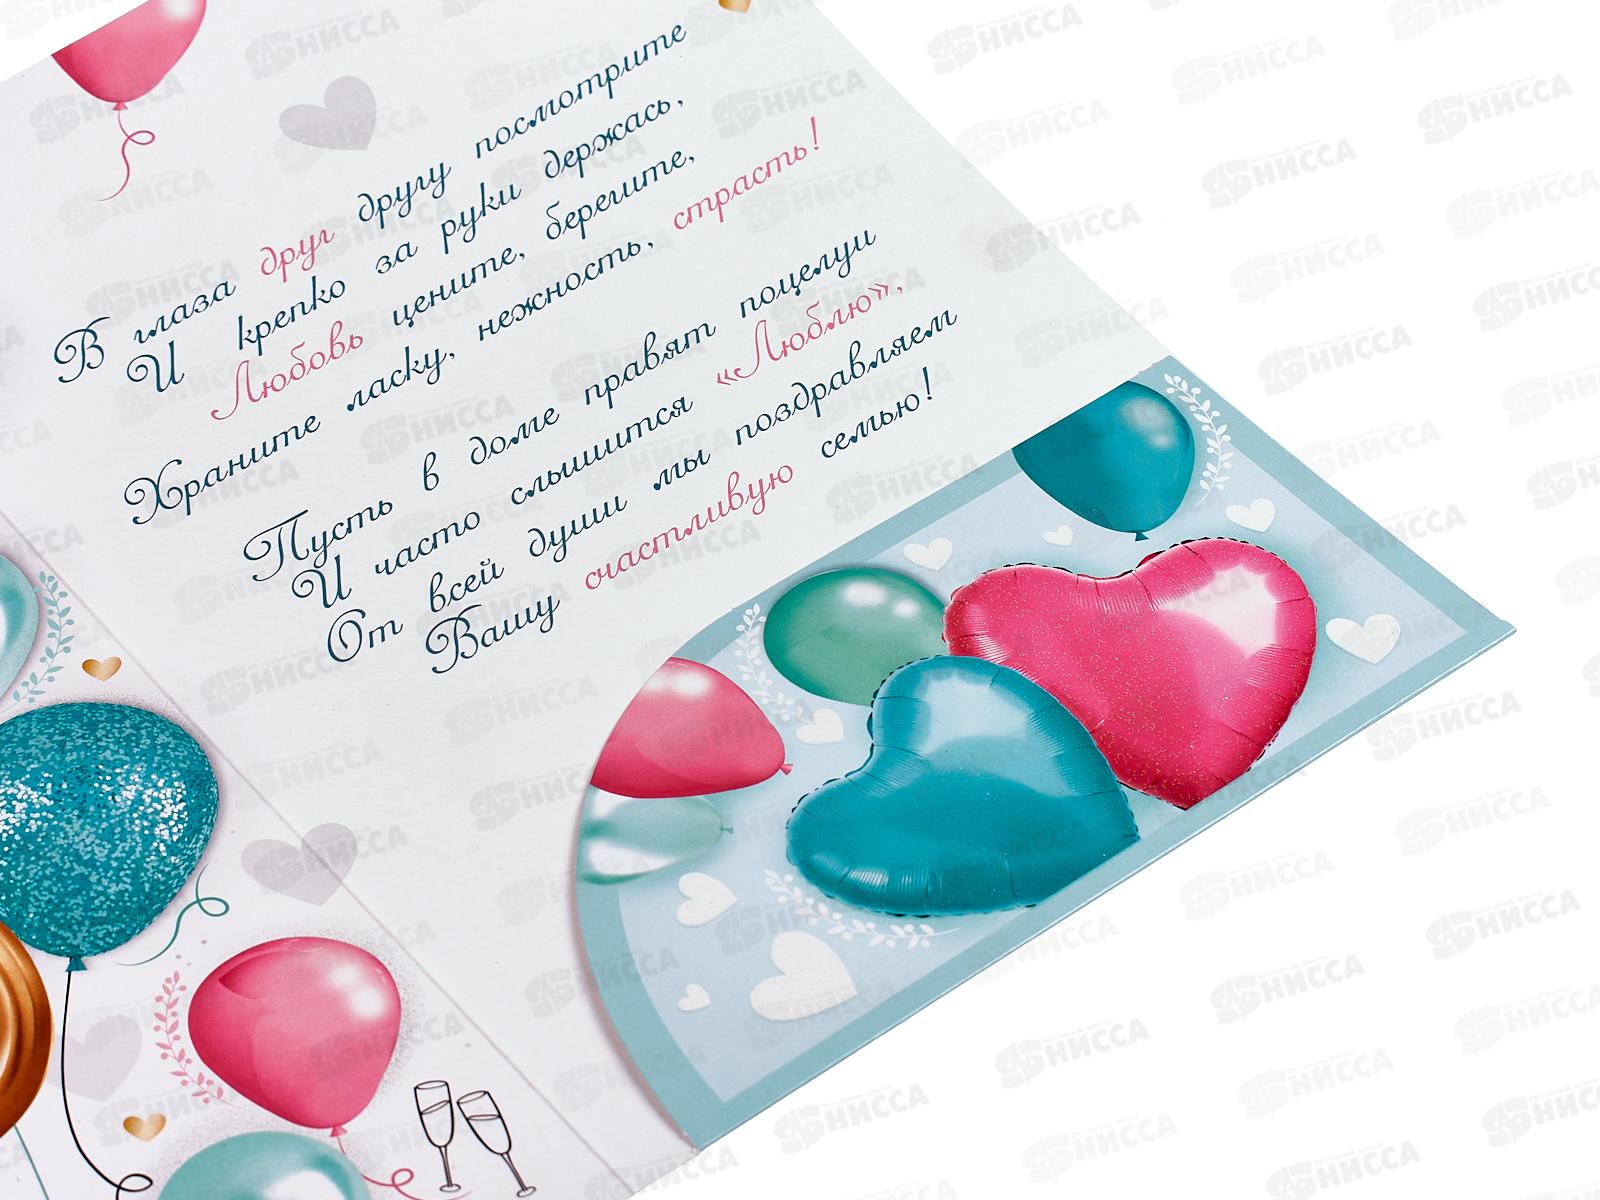 В глаза друг другу посмотрите
И крепко за руки держась,
Любовь цените, берегите,
Храните ласку, нежность, страсть!
Пусть в доме правят поцелуи
И часто слышится «Люблю»,
От всей души мы поздравляем
Вашу счастливую семью!
НИССА